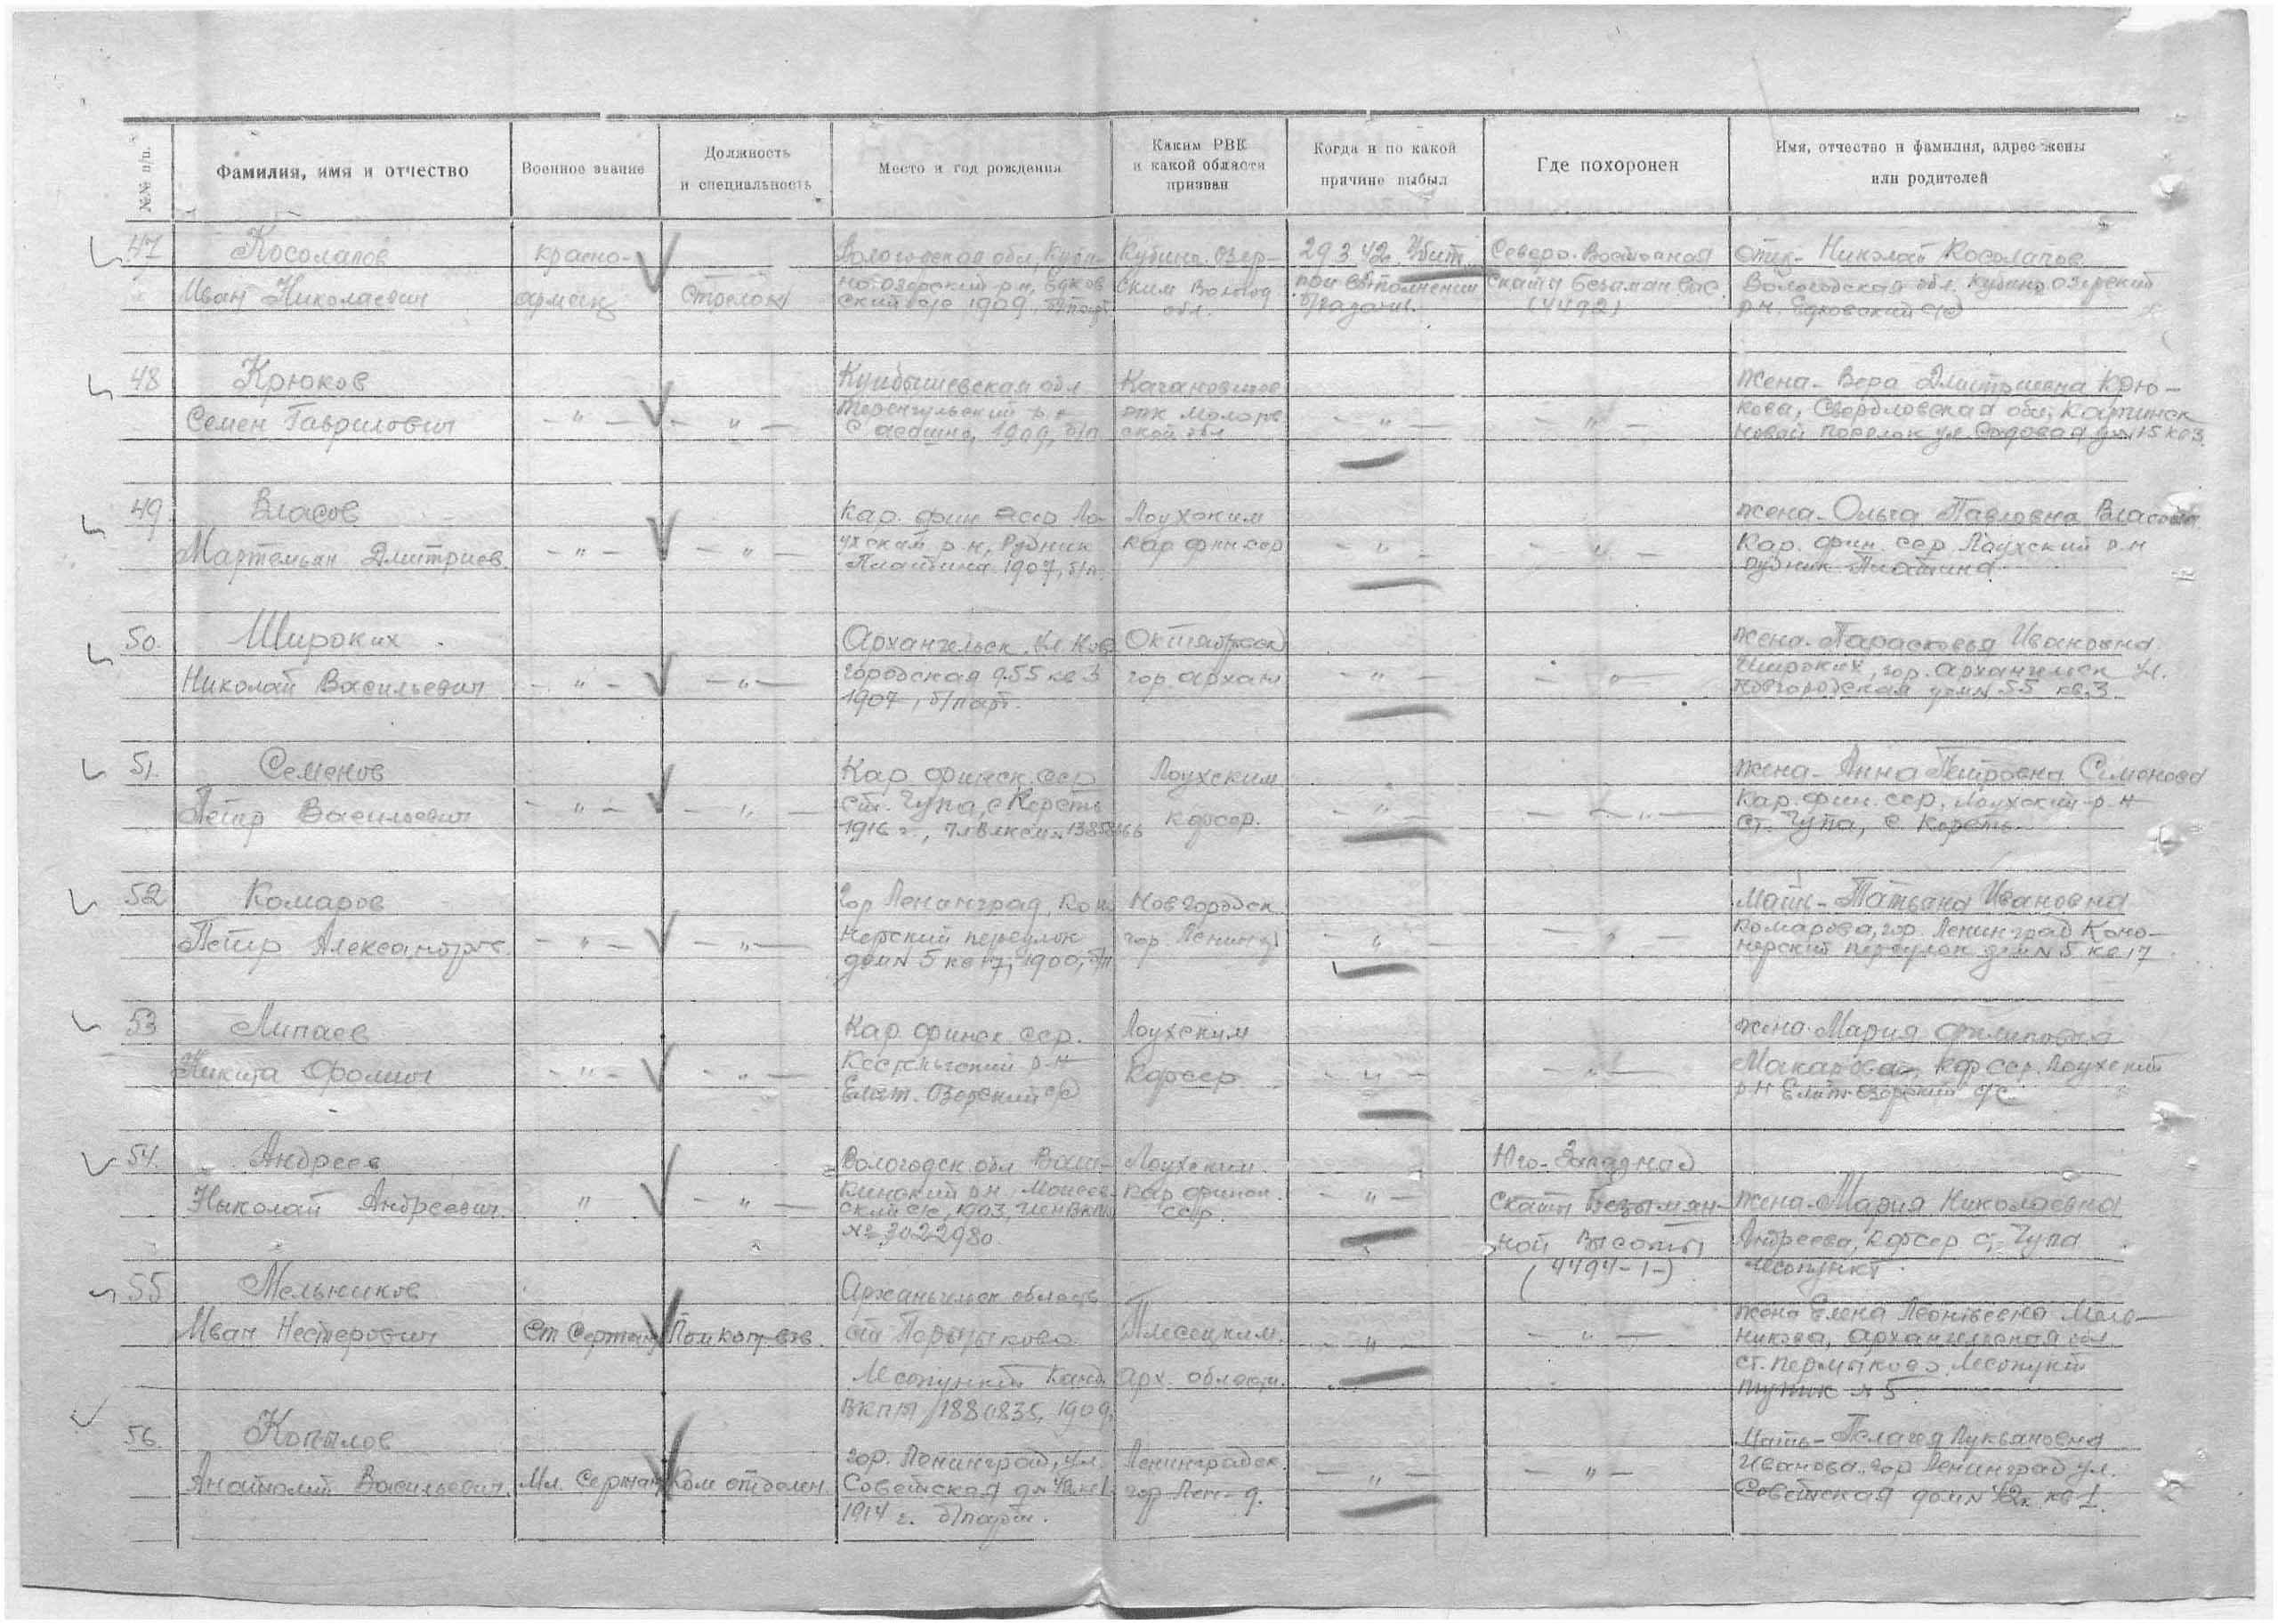 №№ п/п.
Фамилия, имя и отчество
Военное звание
Должность
и специальность
Место и год рождения
Каким РВК
и какой области
призван
Когда и по какой
причине выбыл
Где похоронен
Имя, отчество и фамилия, адрес жены
или родителей
47
Косолапов
Иван Николаевич
красно-
армеец
стрелок
Вологодская обл, Куби-
ноозерский р-н,
ский с/с 1909, б/парт
Кубино-Озер-
ским Волог
обл.
29 3 42 Убит
при выполнении
б/задачи.
Северо-Восточная
скаты безаман выс
(4492)
отец- Николай Косолапов
Вологодская обл. Кубино озерский
р-н, с/с
48
Крюков
Семен Гаврилович
- " -
- " -
Куйбышевская обл
Теренгульский р-н
1909, б/п
Кагановичев
Молотов
ской обл
- " -
- " -
жена- Вера Дмитриевна Крю-
кова, Свердловская обл,
Новый поселок ул. Садовая дом 15 кв 3
49
Власов
Мартемьян Дмитриев.
- " -
- " -
Кар. фин сср Ло-
ухский р-н, Рудник
Плотина 1907, б/п.
Лоухским
Кар фин сср
- " -
- " -
жена- Ольга Павловна Власова
Кар. фин. сср Лоухский р-н
рудник Плотина
50.
Широких
Николай Васильевич
- " -
- " -
Архангельск, ул. Нов
городская д 55 кв 3
1907, б/парт.
Октябрьск
гор. Архан
- " -
- " -
жена- Парасковья Ивановна
Широких, гор. Архангельск ул.
Новгородская дом N 55 кв. 3
51.
Семенов
Петр Васильевич
- " -
- " -
Кар. финск. сср
ст. Чупа, с Кереть
1916 г., чл ВЛКСМ N
Лоухским
Кфсср.
- " -
- " -
жена- Анна Петровна Семенова
Кар. фин. сср, Лоухский р-н
ст. Чупа, с. Кереть
52
Комаров
Петр Александров.
- " -
- " -
гор Ленинград, Коно
нерский переулок
дом N 5 кв 17, 1900, б/п
Новгородск
гор. Ленингр
- " -
- " -
мать- Татьяна Ивановна
Комарова, гор. Ленинград Коно-
нерский переулок дом N 5 кв 17
53
Липаев
Никита Фролович
- " -
- " -
Кар. финск сср.
Кестеньгский р-н
Елет-Озерский с/с
Лоухским
Кфсср
- " -
- " -
жена- Мария Филиповна
Макарова, Кфсср. Лоухский
р-н Елеть-озерский с/с
54.
Андреев
Николай Андреевич
"
- " -
Вологодск. обл Ваш-
кинский р-н,
ский с/с, 1903, член ВКПб
№ 3022980
Лоухским
Кар финск.
сср.
- " -
Юго-Западная
скаты Безымян-
ной Высоты
(4494-1-)
жена- Мария Николаевна
Андреева, Кфсср ст. Чупа
лесопункт
55
Мельников
Иван Нестерович
Ст Сержант
Пом ком. взв.
Архангельск область
ст Пермыково
Лесопункт Канд.
ВКП/б/ 1880835, 1909
Плесецким
Арх. области.
- " -
- " -
жена Елена Леонтьевна Мель-
никова, архангельская обл.
ст. пермыково Лесопункт
56
Копылов
Анатолий Васильевич
Мл. Сержант
Ком отделен.
гор. Ленинград, ул.
Советская
1914 г. б/парт.
Ленинградск.
гор Лен-д.
- " -
- " -
мать- Пелагея Лукьяновна
Иванова, гор Ленинград ул.
Советская дом N 42 кв 1.